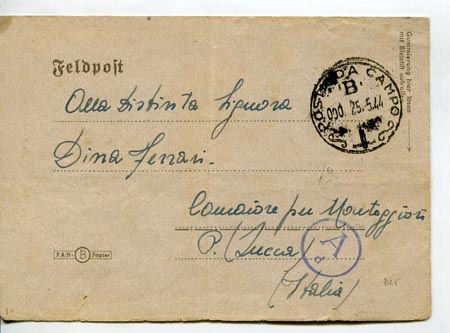 Feldpost
Gummierung hier lösen
POSTA DA CAMPO
"B"
25.5.44
Alla Distinta Signora
Dina Ferrari.
Camaiore per Monteggiori
P. (Lucca)
(Italia)
A
PAN- B Papier